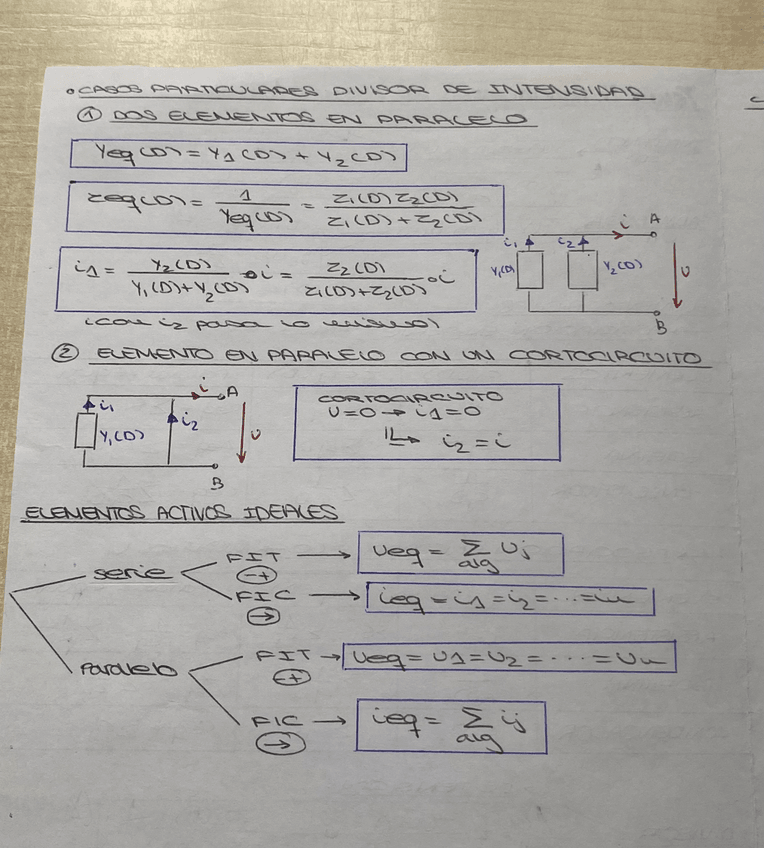 • CASOS PARTICULARES DIVISOR DE INTENSIDAD
① DOS ELEMENTOS EN PARALELO
Yeq(D) = Y1(D) + Y2(D)
Zeq(D) = 1 / Yeq(D) = Z1(D) Z2(D) / Z1(D) + Z2(D)
i1 = Y2(D) / Y1(D) + Y2(D) • i = Z2(D) / Z1(D) + Z2(D) • i
(con i2 pasa lo mismo)
i1 i2 i A
Y1(D) Y2(D) U
B
② ELEMENTO EN PARALELO CON UN CORTOCIRCUITO
i A
i1 i2
Y1(D) U
B
CORTOCIRCUITO
U=0 → i1=0
↳ i2 = i
ELEMENTOS ACTIVOS IDEALES
serie
FIT → Ueq = Σ Uj
-+ alg
FIC → ieq = i1 = i2 = ... = in
→
Paralelo
FIT → Ueq = U1 = U2 = ... = Un
-+
FIC → ieq = Σ ij
→ alg